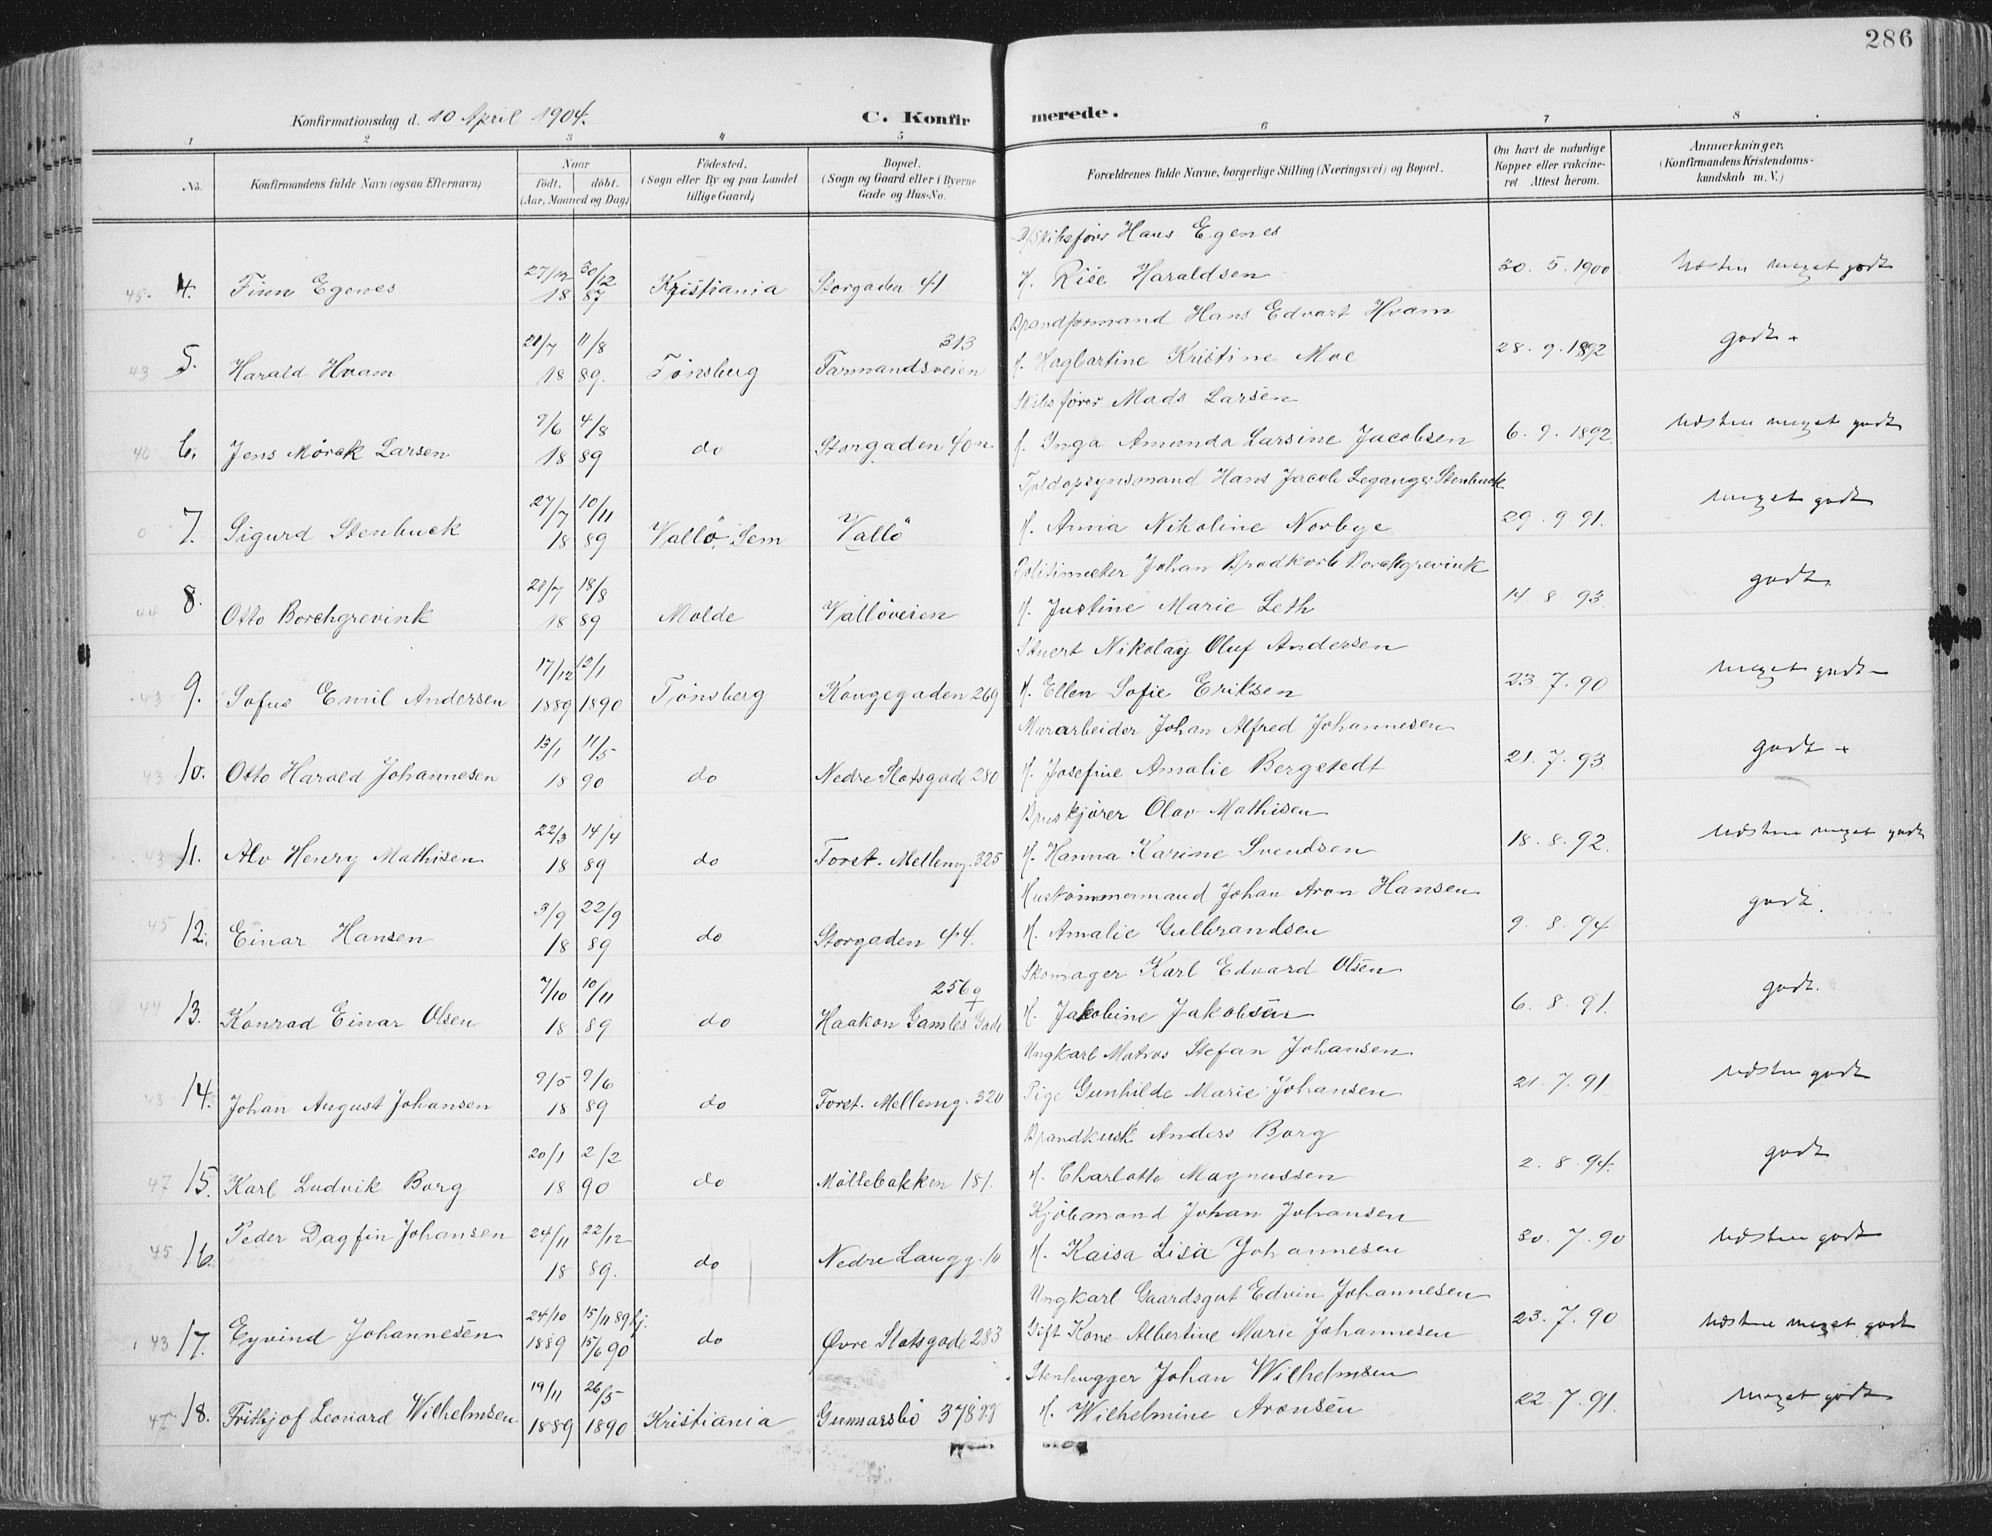 286
Konfirmationsdag d. 10 April 1904. C. Konfir merede.
1 2 3 4 5 6 7 8
No. Konfirmandens fulde Navn (ogsaa Efternavn) Naar født. døbt. (Aar, Maaned og Dag) Fødested. (Sogn eller By og paa Landet tillige Gaard) Bopæl. (Sogn og Gaard eller i Byerne Gade og Hus-No. Forældrenes fulde Navne, borgerlige Stilling (Næringsvei) og Bopæl. Om havt de naturlige Kopper eller vakcineret Attest herom. Anmærkninger. (Konfirmandens Kristendomskundskab m. V.)
Hans Egenes
45 4. Finn Egenes 27/12 30/12 18 87 Kristiania Storgaden 41 H. Rise Haraldsen 30. 5. 1900 Næsten meget godt
Brandformand Hans Edvart Hvam
43 5. Harald Hvam 21/7 11/8 18 89. Tønsberg 313 Farmandsveien H. Hagbartine Kristine Moe 28. 9. 1892 godt +
Skibsfører Mads Larsen
46 6. Jens Mørck Larsen 7/6 4/8 18 89 do Storgaden 40 n. H. Inga Amanda Larsine Jacobsen 6. 9. 1892. Næsten meget godt
Toldopsynsmand Hans Jacob Leganger Stenbuck
0 7. Sigurd Stenbuck 27/7 10/11 18 89 Vallö, Sem Vallö H. Anna Nikoline Norbye 29. 9. 91. Meget godt
Politimester Johan Brodkorb Borchgrevink
44 8. Otto Borchgrevink 21/7 18/8 18 89 Molde Vallöveien H. Justine Marie Leth 14. 8. 93 godt.
Stuert Nikolay Oluf Andersen
43 9. Sofus Emil Andersen 17/12 12/1 1889 1890 Tønsberg Kongegaden 269 H. Ellen Sofie Eriksen 23 7. 90 Meget godt
Murarbeider Johan Alfred Johannesen
43 10. Otto Harald Johannesen 13/1 11/5 18 90 do Nedre Slotsgade 280 H. Josefine Amalie Bergstedt 21. 7. 93. godt +
Bruskjører Olav Mathisen
43 11. Alv Henry Mathisen 22/3 14/4 18 89 do Forst. Mellemg. 325 H. Hanna Karine Svendsen 18. 8. 92. Næsten meget godt
Hustømmermand Johan Aron Hansen
45 12. Einar Hansen 3/9 22/9 18 89 do Storgaden 44. H. Amalie Gulbrandsen 9. 8. 94 godt.
Skomager Karl Edvard Olsen
44 13. Konrad Einar Olsen 7/10 10/11 18 89 do 256 q Haakon Gamles Gade H. Jakobine Jakobsen 6. 8. 91. godt.
Ungkarl Matros Stefan Johansen
43 14. Johan August Johansen 9/5 9/6 18 89 do Forst. Mellemg. 320 Pige Gunhilde Marie Johansen 21. 7. 91 Næsten godt
Brandkusk Anders Borg
47 15. Karl Ludvik Borg 20/1 2/2 18 90 do Möllebakken 181. H. Charlotte Magnussen 2. 8. 94. godt
Kjøbmand Johan Johansen
45 16. Peder Dagfin Johansen 24/11 22/12 18 89. do Nedre Langg. 10 H. Kaisa Lisa Johannesen 30. 7. 90 Næsten godt
Ungkarl Gaardsgut Edvin Johannesen
43 17. Eyvind Johannesen 24/10 1889 15/11 89 hj. 15/6 90 do Øvre Slotsgade 283 Gift Kone Albertine Marie Johannesen 23. 7. 90 Næsten meget godt
Stenhugger Johan Wilhelmsen
45 18. Frithjof Leonard Wilhelmsen 19/11 26/5 1889 1890 Kristiania Gunnarsbö 378 H. Wilhelmine Aronsen 22. 7. 91. Meget godt